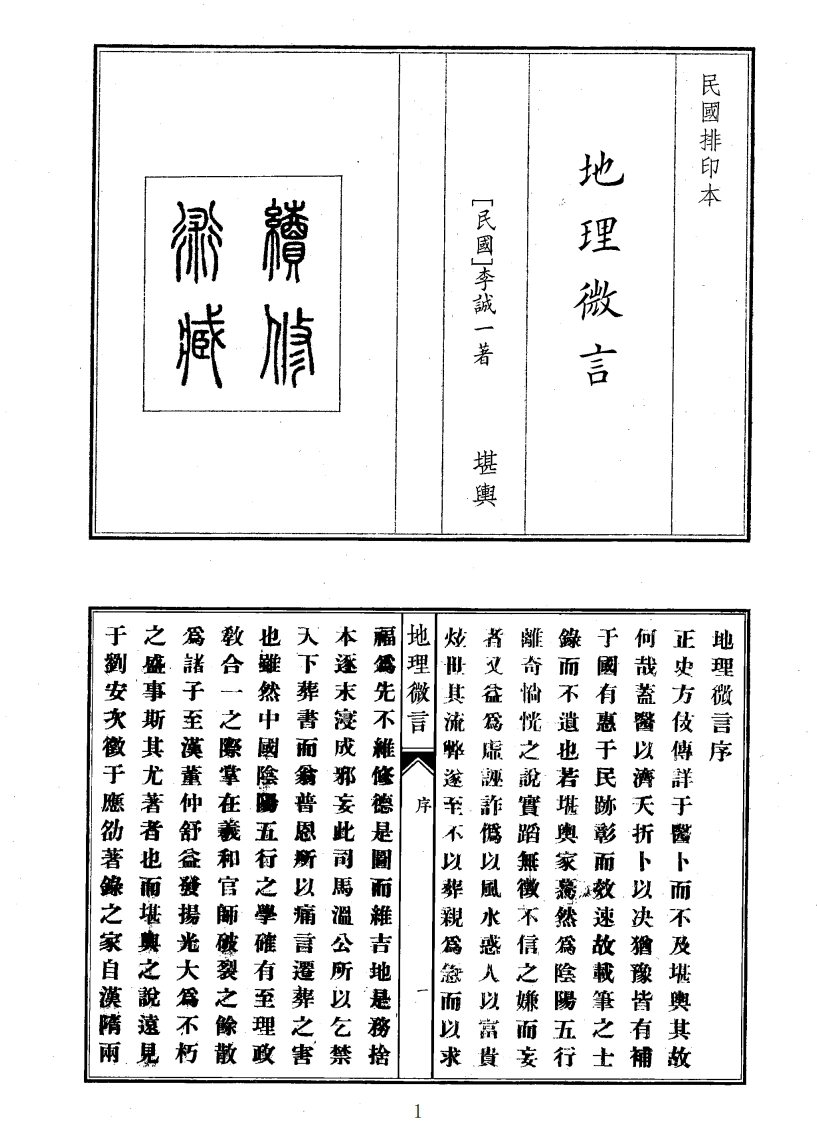 民國排印本
地理微言
[民國]李誠一著　堪輿
續修
術藏
地理微言序
正史方伎傳詳于醫卜而不及堪輿其故
何哉蓋醫以濟夭折卜以決猶豫皆有補
于國有惠于民跡彰而效速故載筆之士
錄而不遺也若堪輿家驀然為陰陽五行
離奇惝恍之說實蹈無徵不信之嫌而妄
者又益為虛誣詐偽以風水惑人以富貴
炫世其流弊遂至不以葬親為急而以求
地理微言　序　一
福為先不維修德是圖而維吉地是務捨
本逐末寖成邪妄此司馬溫公所以乞禁
天下葬書而翁普恩所以痛言遷葬之害
也雖然中國陰陽五行之學確有至理政
敎合一之際掌在羲和官師破裂之餘散
為諸子至漢董仲舒益發揚光大為不朽
之盛事斯其尤著者也而堪輿之說遠見
于劉安次徵于應劭著錄之家自漢隋兩
1